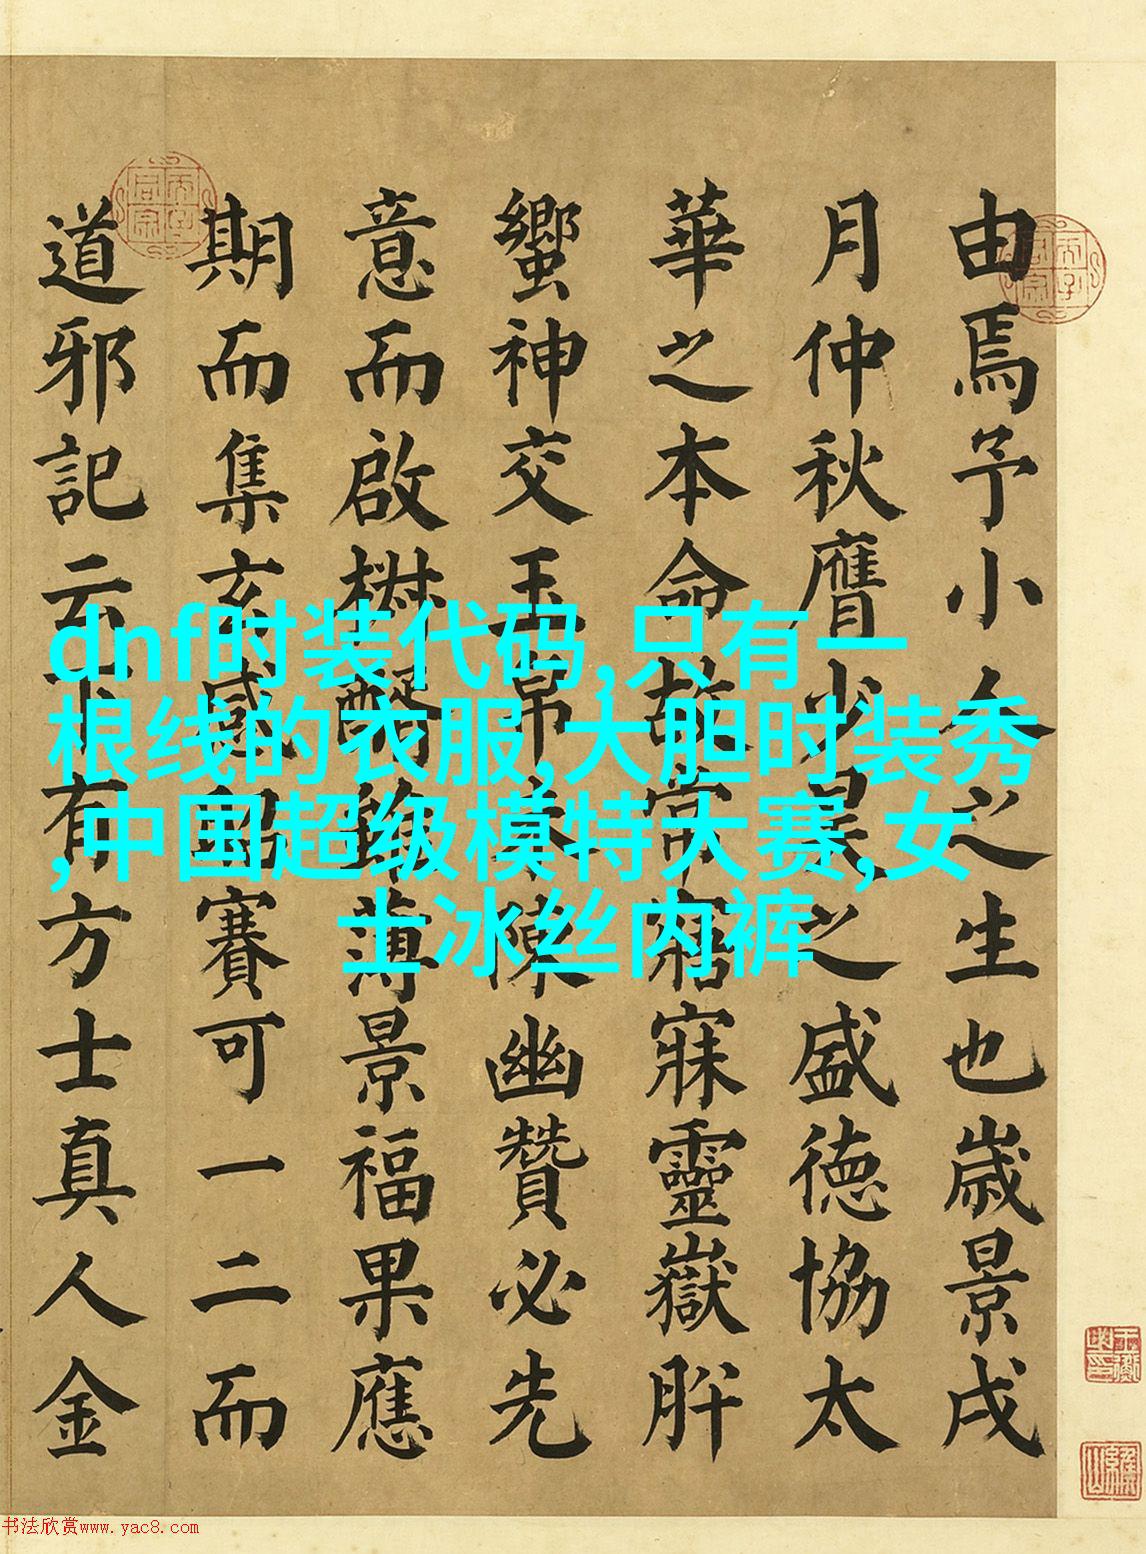 由焉予小人之生也歲景戌
月仲秋膺少昊之盛德協太
華之本命故常寤寐靈嶽肸
蠁神交玉帛陳幽贊必先
意而啟薄景福果應
期而集玄感賽可一二而
道邪記云有方士真人金
dnf时装代码,只有一
根线的衣服,大胆时装秀
,中国超级模特大赛,女
士冰丝内裤
书法欣赏www.yac8.com